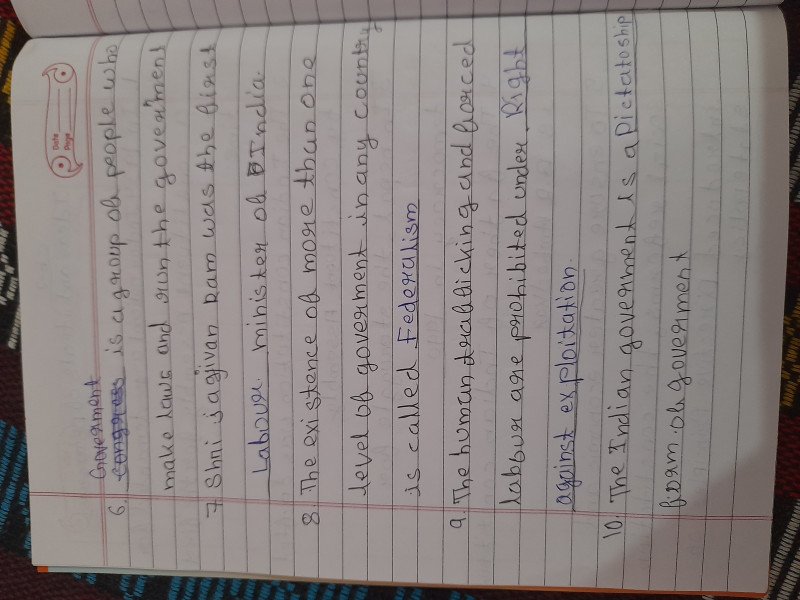 Date
Page
Government
6. congress is a group of people who
make laws and run the goverment
7. Shri jagjivan Ram was the first
Labour minister of India.
8. The existence of more than one
level of goverment in any country
is called Federalism
9. The human trafficking and forced
labour are prohibited under Right
against exploitation.
10. The Indian government is a Dictatoship
foram of goverment